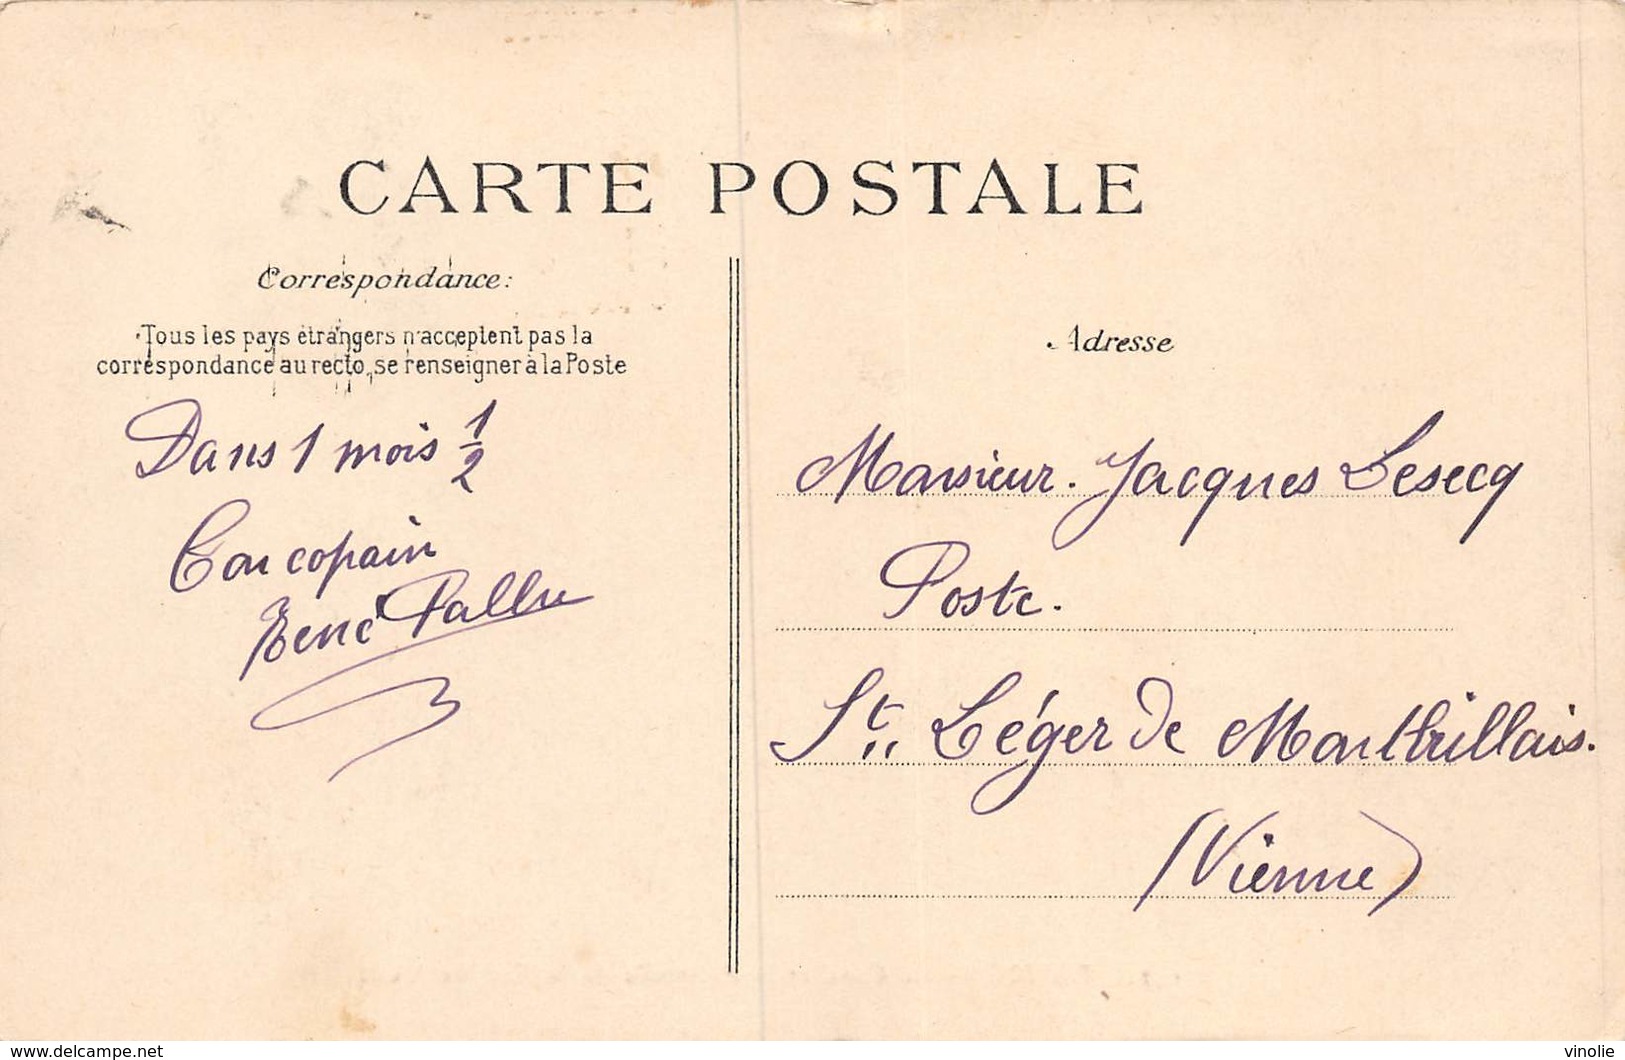 CARTE POSTALE
Correspondance:
Tous les pays étrangers n'acceptent pas la
correspondance au recto, se renseigner à la Poste
Dans 1 mois 1/2
Ton copain
René Pallu
Adresse
Monsieur Jacques Lesecq
Poste.
St. Léger de Montbrillais.
(Vienne)
www.delcampe.net
vinolie